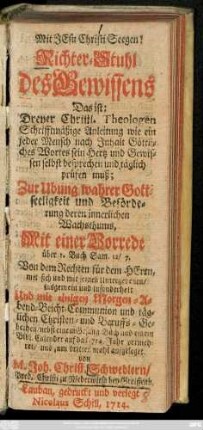 Mit JEsu Christi Seegen!
Richter-Stuhl
des Gewissens
Das ist:
Dreyer Christl. Theologen
Schrifftmäßige Anleitung wie ein
jeder Mensch nach Inhalt Göttli-
ches Wortes sein Hertz und Gewis-
sen selbst besprechen und täglich
prüfen muß;
Zur Ubung wahrer Gott-
seeligkeit und Beförde-
rung deren innerlichen
Wachsthums,
Mit einer Vorrede
über 1. Buch Sam. 12/ 7.
Von dem Rechten für dem HErrn,
Und mit einigen Morgen- A-
bend- Beicht- Communion und täg-
lichen Christen- und Beruffs- Ge-
Calender auf das 714. Jahr
und zum dritten mahl ausgefertiget
von
M. Joh. Christ. Schwedlern/
Pred. Christi zu Niederwiesa bey Greiffenb.
Lauban, gedruckt und verlegts
Nicolaus Schill, 1714.